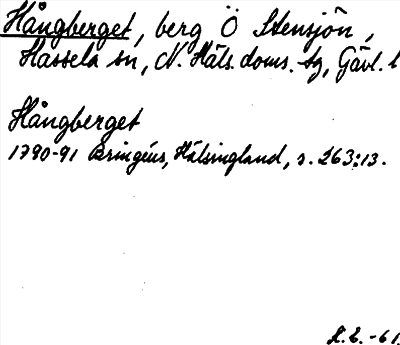 Hångberget, berg Ö Stensjön,
Hassela sn, N. Häls. doms. tg, Gävl. l
Hångberget
1790-91 Bringéus, Hälsingland, s. 263:13.
-61.